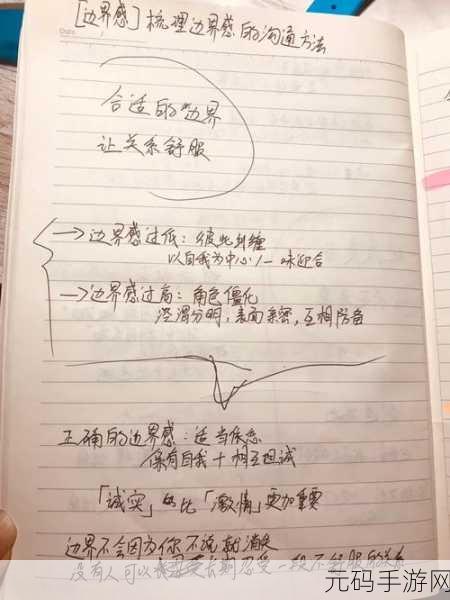 [边界感] 梳理边界感的沟通方法
Date
合适的边界
让关系舒服
→边界感过低：彼此纠缠
以自我为中心/一味迎合
→边界感过高：角色僵化
泾渭分明，表面亲密，互相防备
正确的边界感：适当
保有自我+相互坦诚
「诚实」 比「激情」更加重要
边界不会因为你不说就消失
没有人可以 长期忍受一段不舒服的关系
元码手游网